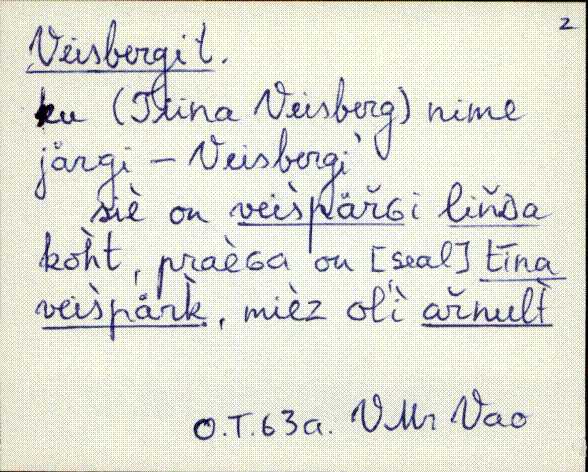 2
Veisbergi t.
ku (Tiina Veisberg) nime
järgi – Veisbergi
siè on veìspårɢi lĭnᴅa
koh̀t, praèɢa on [seal] tīna
veìspårk, mièz oĺì ařnult̀
O.T. 63 a. VMr Vao